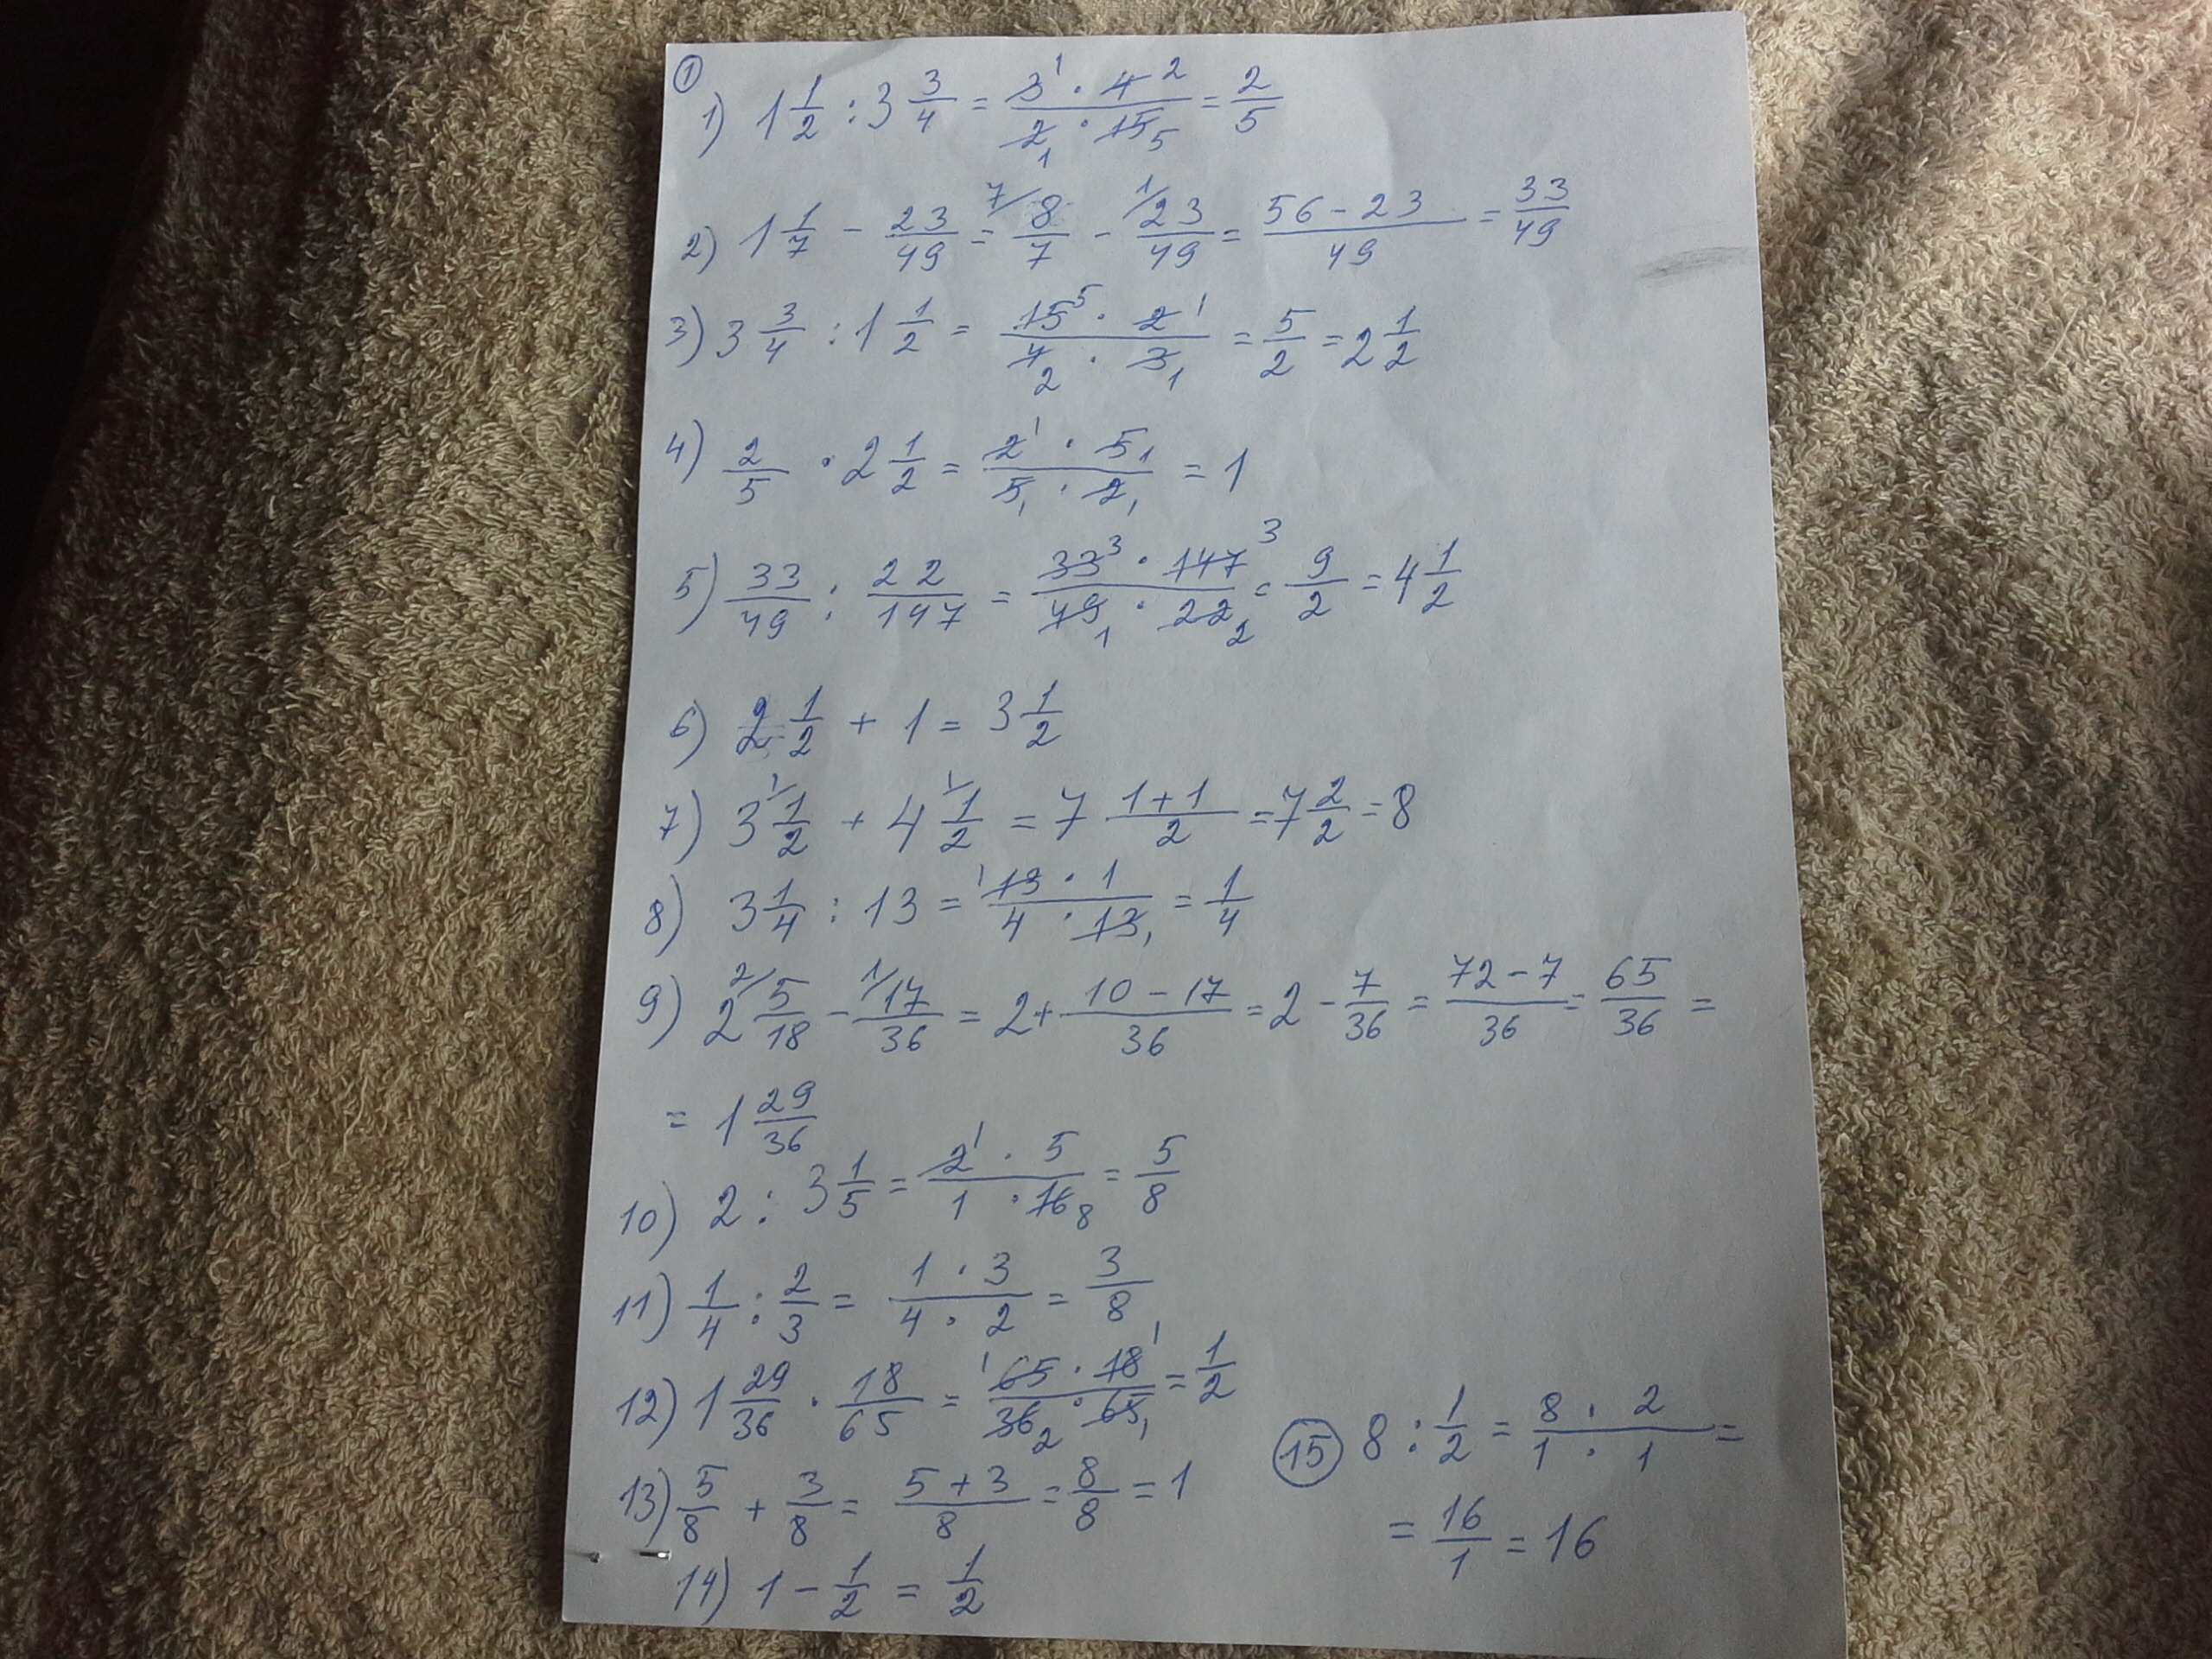 ①
1) 1 1/2 : 3 3/4 = 3¹ · 4² / 2₁ · 15₅ = 2/5
2) 1 1/7 - 23/49 = ⁷⁄ 8/7 - ¹⁄ 23/49 = 56 - 23 / 49 = 33/49
3) 3 3/4 : 1 1/2 = 15⁵ · 2¹ / 4₂ · 3₁ = 5/2 = 2 1/2
4) 2/5 · 2 1/2 = 2¹ · 5₁ / 5₁ · 2₁ = 1
5) 33/49 : 22/147 = 33³ · 147³ / 49₁ · 22₂ = 9/2 = 4 1/2
6) 2 1/2 + 1 = 3 1/2
7) 3 ¹⁄ 1/2 + 4 ¹⁄ 1/2 = 7 1+1 / 2 = 7 2/2 = 8
8) 3 1/4 : 13 = ¹13 · 1 / 4 · 13₁ = 1/4
9) 2 ²⁄ 5/18 - ¹⁄ 17/36 = 2 + 10 - 17 / 36 = 2 - 7/36 = 72 - 7 / 36 = 65/36 =
= 1 29/36
10) 2 : 3 1/5 = 2¹ · 5 / 1 · 16₈ = 5/8
11) 1/4 : 2/3 = 1 · 3 / 4 · 2 = 3/8
12) 1 29/36 · 18/65 = ¹65 · 18¹ / 36₂ · 65₁ = 1/2
13) 5/8 + 3/8 = 5 + 3 / 8 = 8/8 = 1
14) 1 - 1/2 = 1/2
⑮ 8 : 1/2 = 8 · 2 / 1 · 1 =
= 16/1 = 16